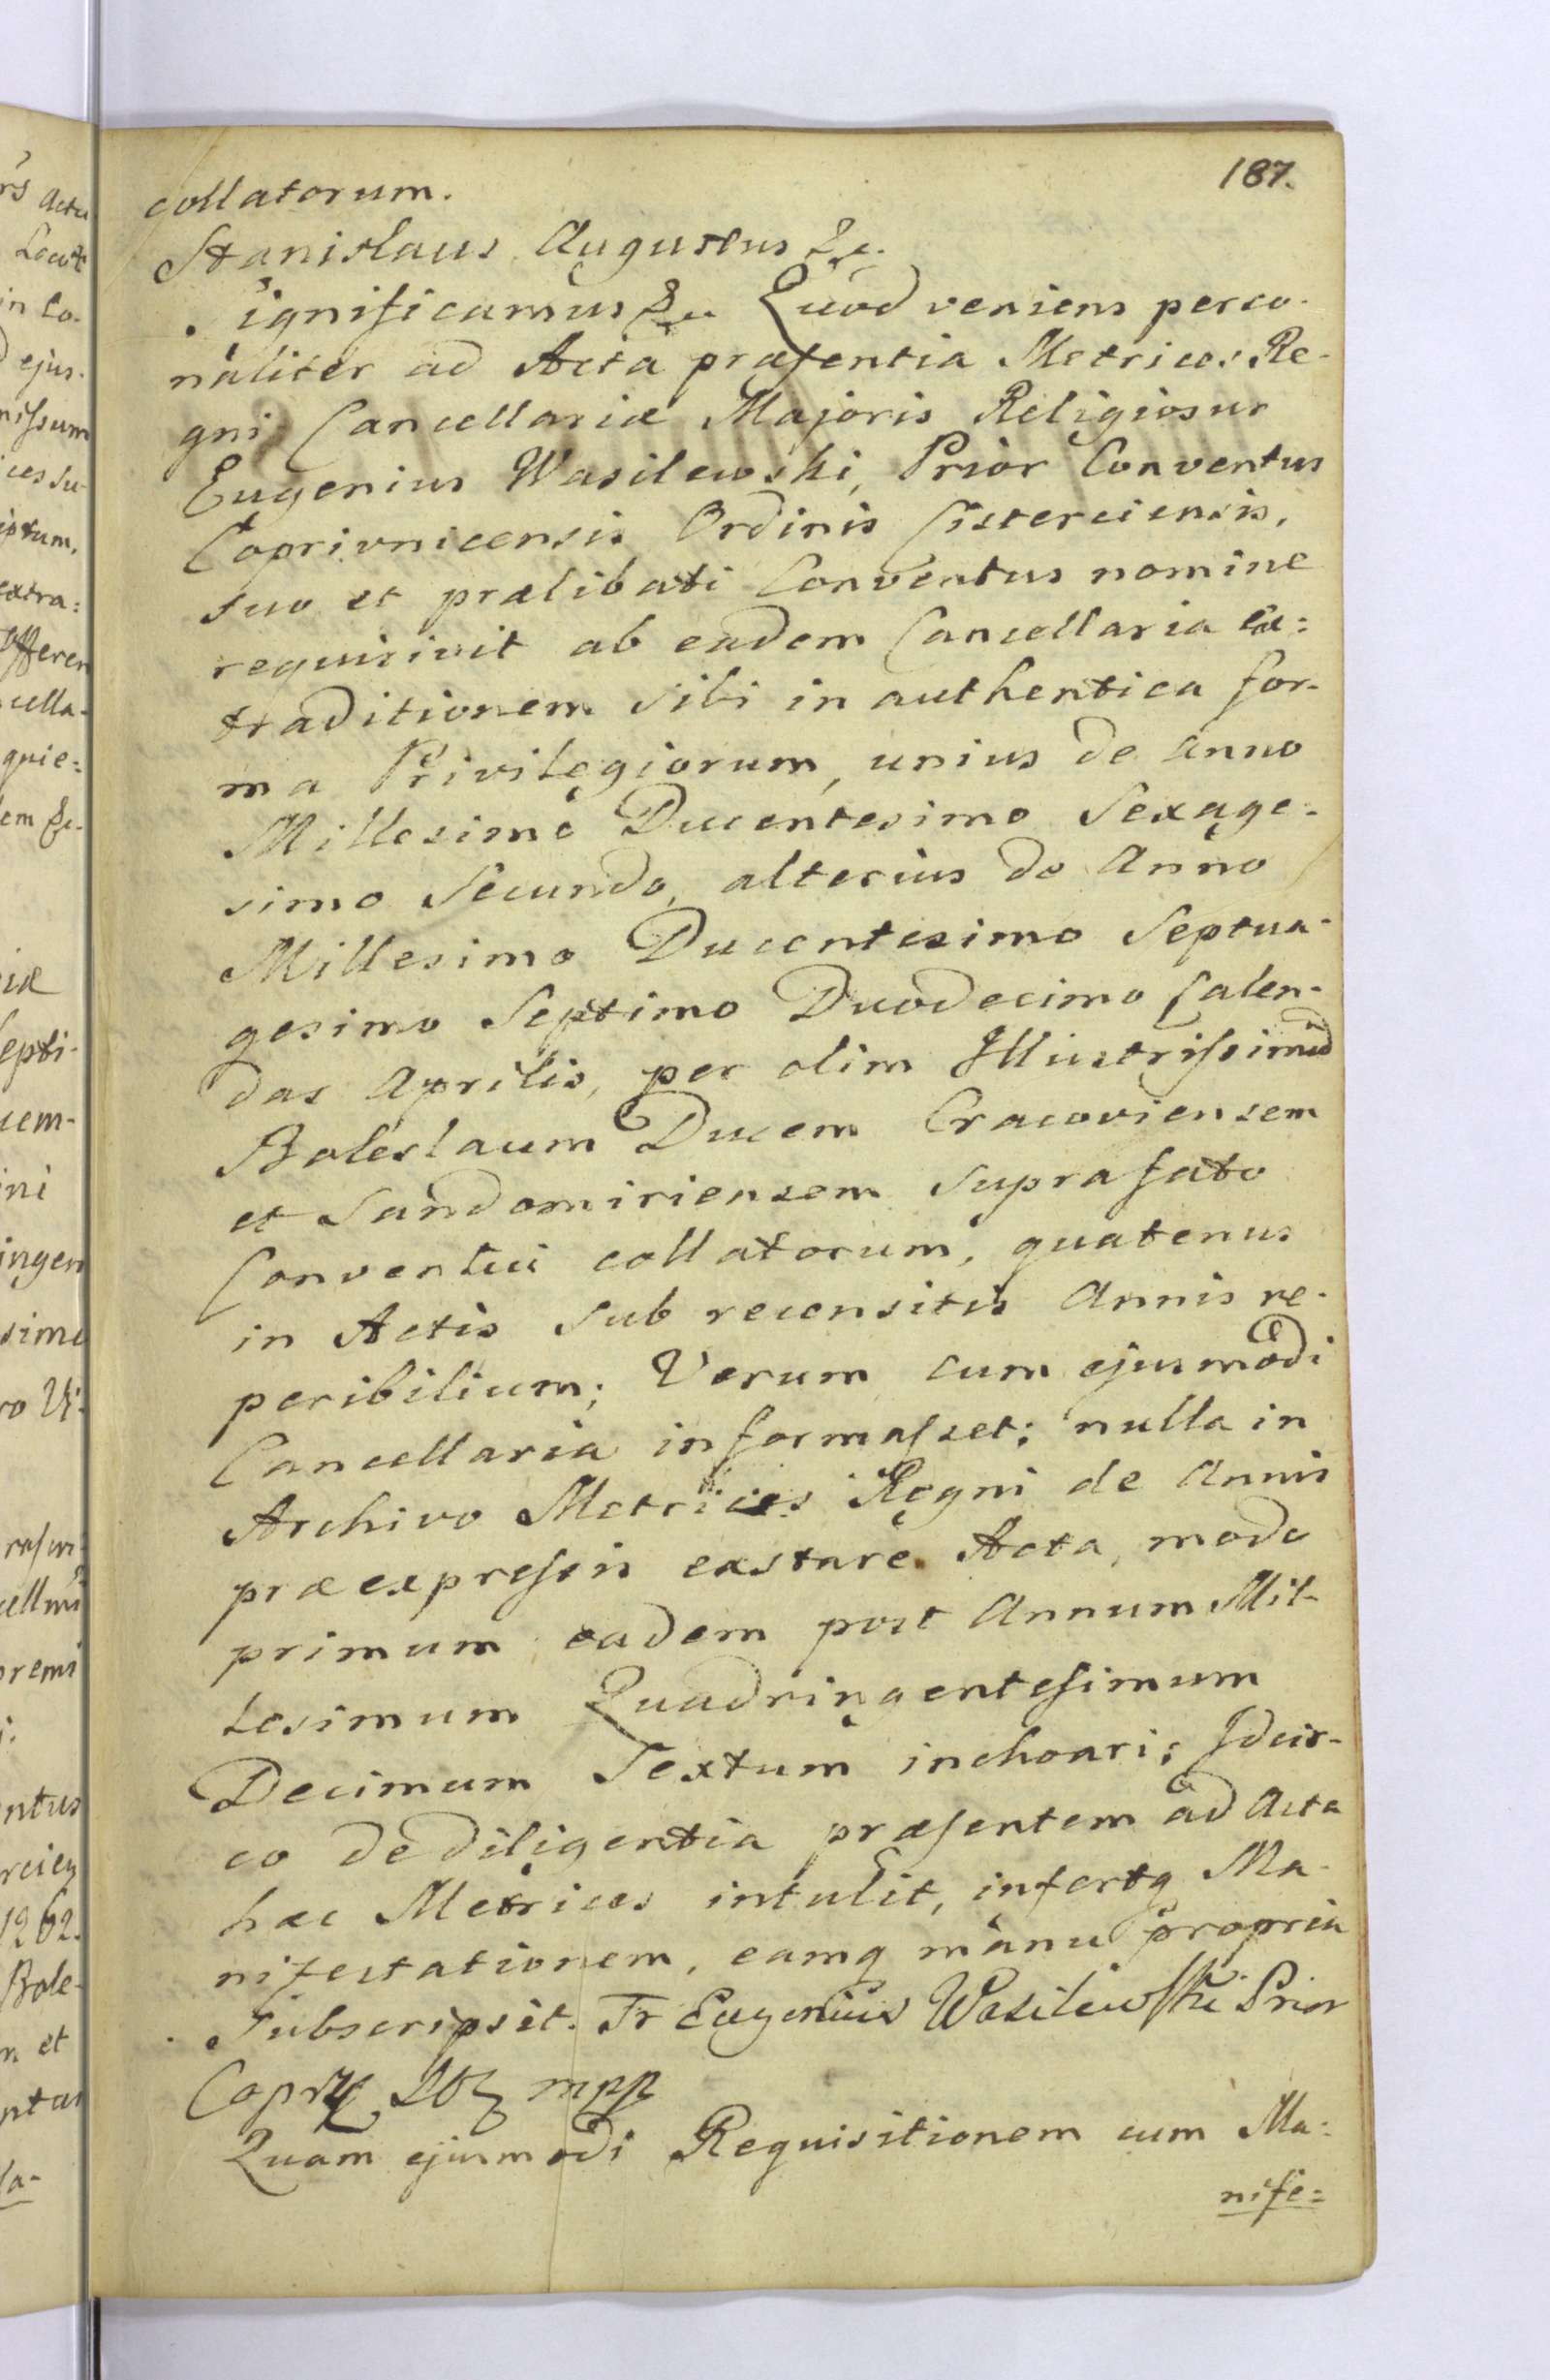 187.
collatorum.
Stanislaus Augustus &c.
Significamus &c. Quod veniens perso-
naliter ad Acta præsentia Metrices Re-
gni Cancellariæ Majoris Religiosus
Eugenius Wasilewski, Prior Conventus
Coprivnicensis Ordinis Cisterciensis,
suo et prælibati Conventus nomine
requisivit ab eadem Cancellaria ex:
traditionem sibi in authentica for-
ma Privilegiorum, unius de anno
Millesimo Ducentesimo Sexage-
simo Secundo, alterius de Anno
Millesimo Ducentesimo Septua-
gesimo Septimo Duodecimo Calen-
das Aprilis, per olim Illustrissimũ
Boleslaum Ducem Cracoviensem
et Sandomiriensem suprafato
Conventui collatorum, quatenus
in Actis sub recensitis Annis re-
peribilium; Verum cum ejusmodi
Cancellaria informasset; nulla in
Archivo Metrices Regni de Annis
præexpressis exstare Acta, modo
primum eadem post Annum Mil-
lesimum Quadringentesimum
Decimum Sextum inchoari; Idcir-
co de diligentia præsentem ad Acta
hæc Metrices intulit, infertq Ma-
nifestationem, eamq manu propria
subscripsit. Fr Eugenius Wasilewski Prior
mpp
Quam ejusmodi Requisitionem cum Ma:
nife=